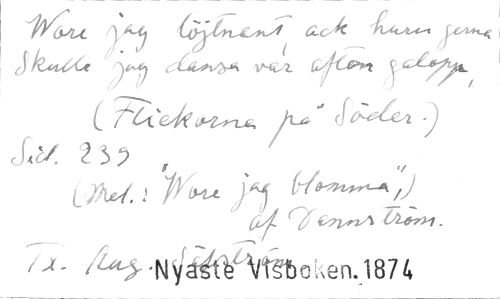 Wore jag löjtnant ack huru gerna
Skulle jag dansa var afton galopp,
(Flickorna på Söder.)
Sid. 239
(Mel.: "Wore jag blomma",)
af Dannström.
Tx. Aug. Säfström
Nyaste Visboken. 1874